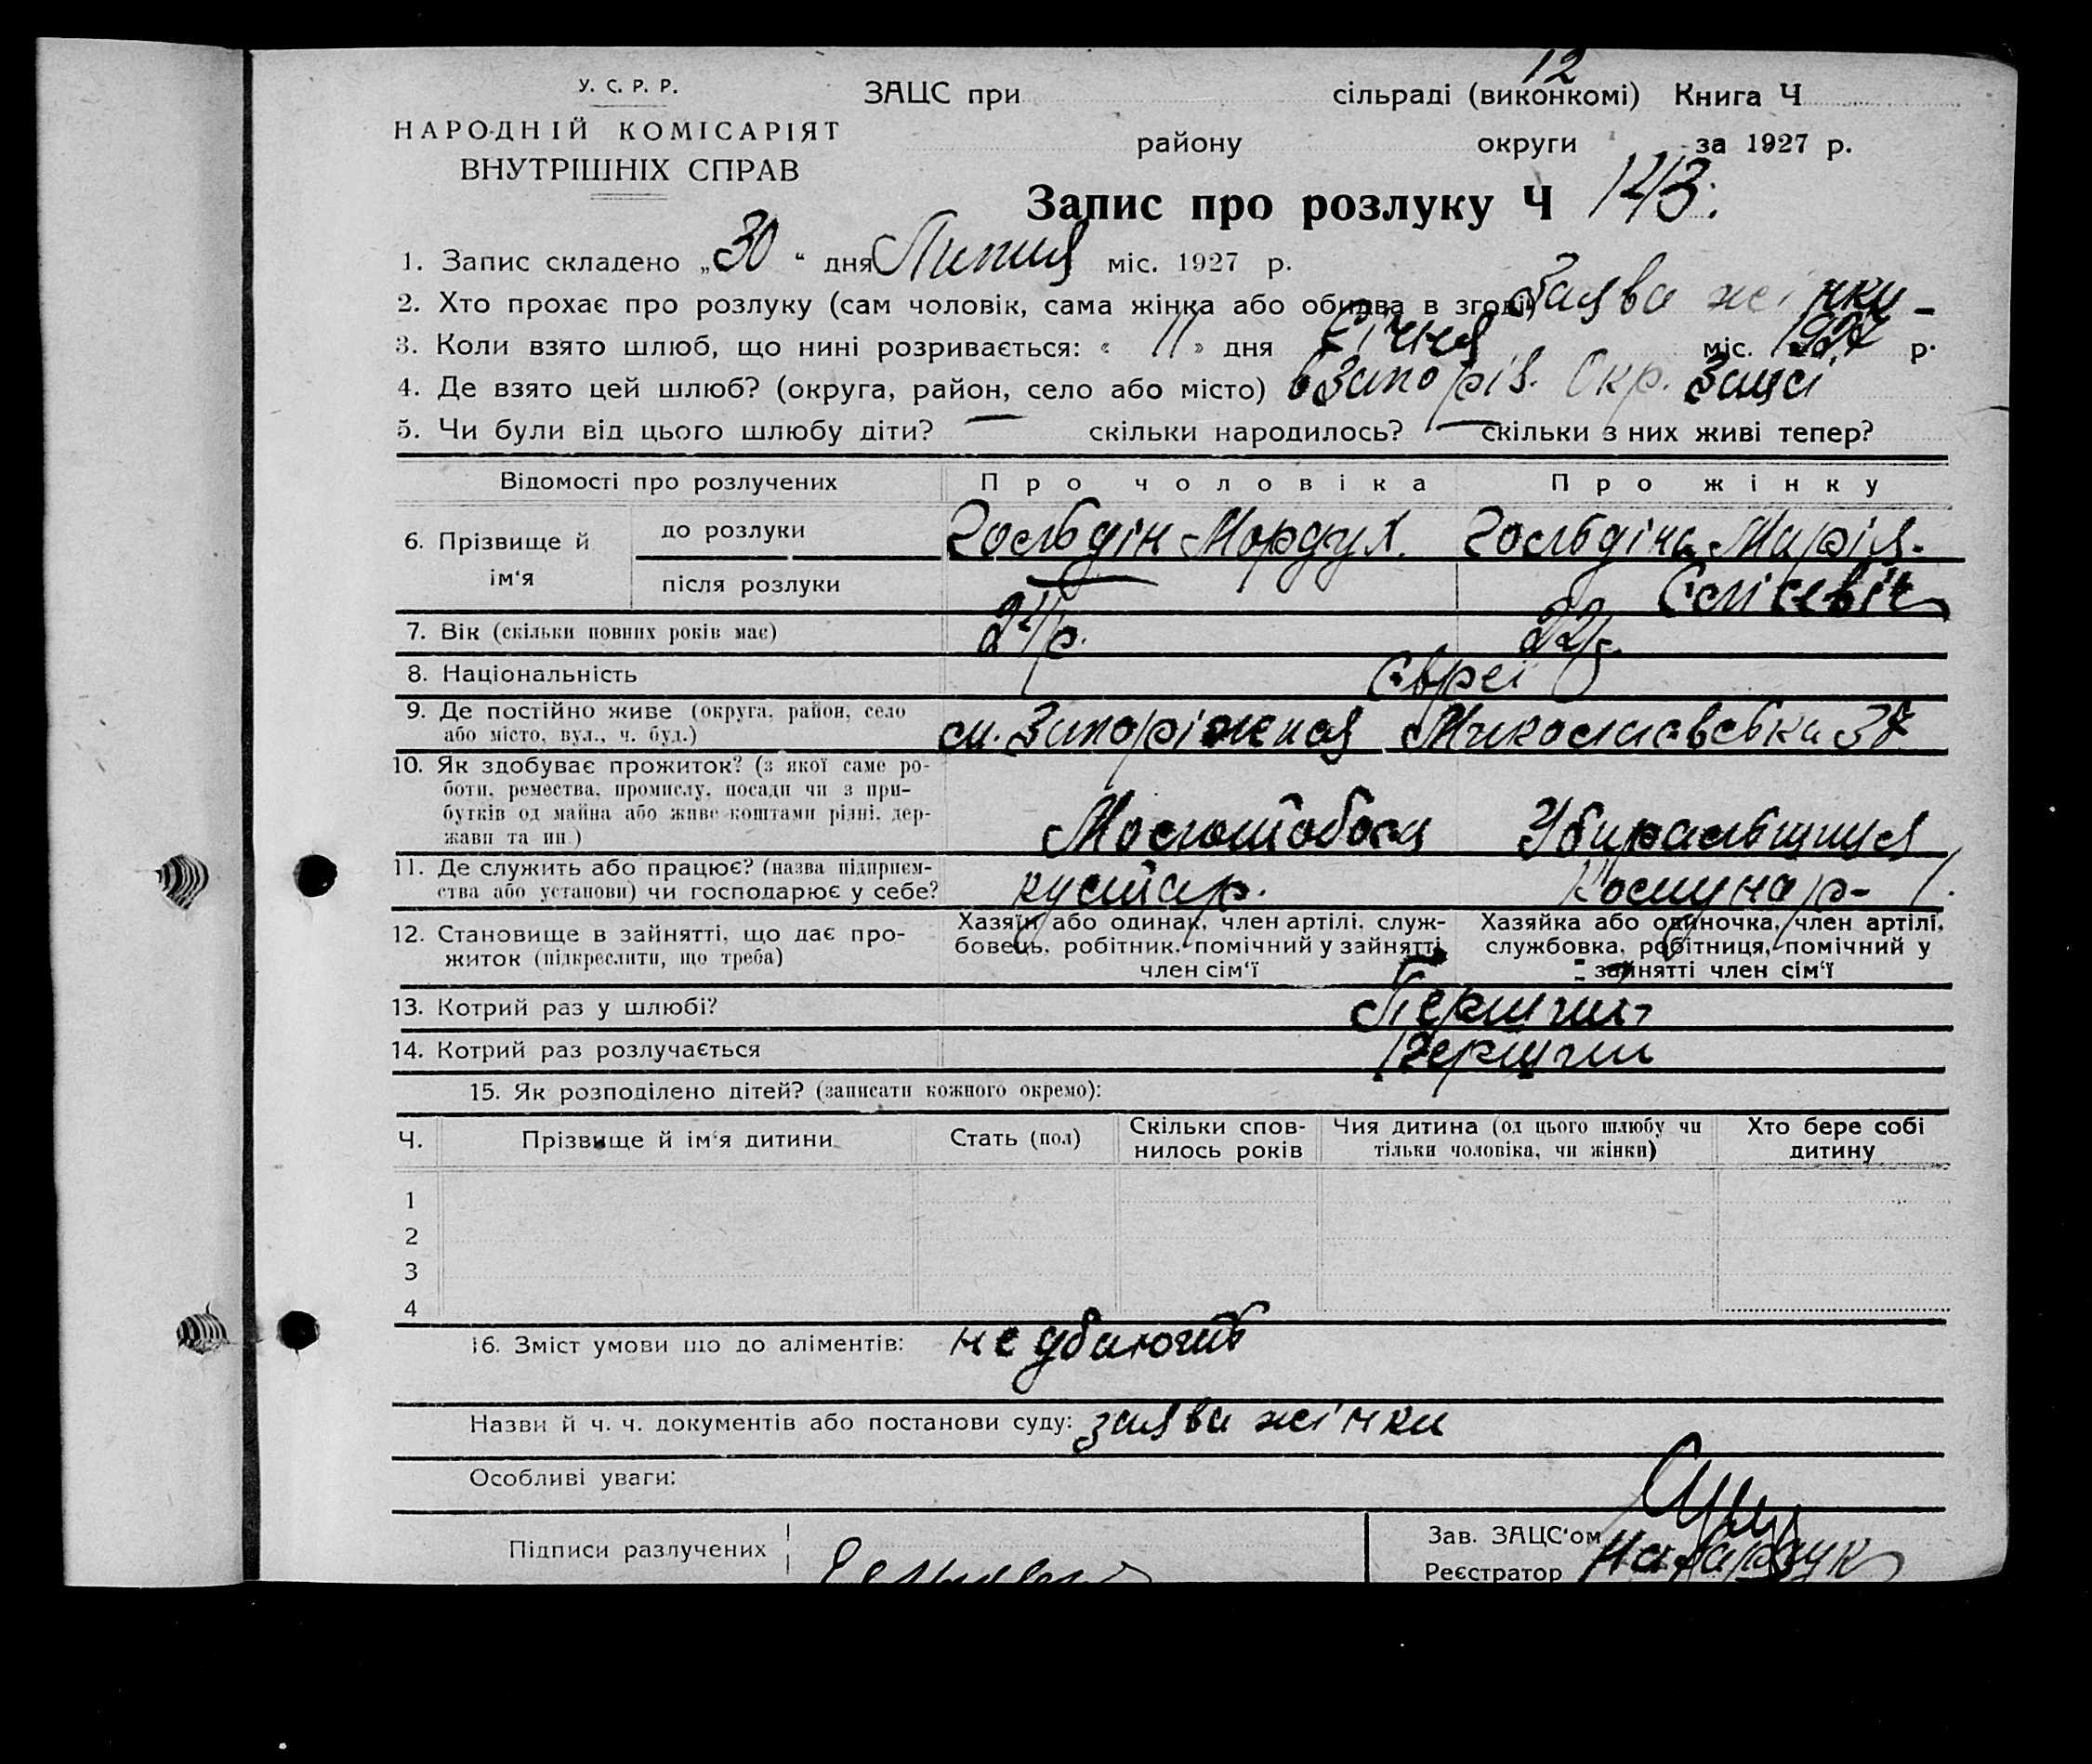 12
У. С. Р. Р. ЗАЦС при сільраді (виконкомі) Книга Ч
НАРОДНІЙ КОМІСАРІЯТ
ВНУТРІШНІХ СПРАВ
району округи за 1927 р.
Запис про розлуку Ч 143.
1. Запис складено „30“ дня Липня міс. 1927 р.
2. Хто прохає про розлуку (сам чоловік, сама жінка або обидва в згоді) Заява жінки –
3. Коли взято шлюб, що нині розривається: « 11 » дня Січня міс. 1927 р.
4. Де взято цей шлюб? (округа, район, село або місто) в Запоріз. Окр. Зацсі
5. Чи були від цього шлюбу діти? — скільки народилось? — скільки з них живі тепер?
Відомості про розлучених Про чоловіка Про жінку
6. Прізвище й ім‘я до розлуки Гольдін Мордух. Гольдіна Марія.
після розлуки — Єлісевіч
7. Вік (скільки повних років має) 24 р. 22 р.
8. Національність Євреї
9. Де постійно живе (округа, район, село
або місто, вул., ч. буд.) м. Запоріжжя Миколаєвська 37
10. Як здобуває прожиток? (з якої саме ро-
боти, ремества, промислу, посади чи з при-
бутків од майна або живе коштами рідні, дер-
жави та ин.) Молотобоєц Убиральщиця
11. Де служить або працює? (назва підприєм-
ства або установи) чи господарює у себе? кустар. Комунар
12. Становище в зайнятті, що дає про-
житок (підкреслити, що треба)
Хазяїн або одинак, член артілі, служ-
бовець, робітник, помічний у зайнятті
член сім‘ї
Хазяйка або одиночка, член артілі,
службовка, робітниця, помічний у
зайнятті член сім‘ї
13. Котрий раз у шлюбі? Перший
14. Котрий раз розлучається Перший
15. Як розподілено дітей? (записати кожного окремо):
Ч. Прізвище й ім‘я дитини Стать (пол) Скільки спов-
нилось років Чия дитина (од цього шлюбу чи
тільки чоловіка, чи жінки) Хто бере собі
дитину
1
2
3
4
16. Зміст умови що до аліментів: не дбають
Назви й ч. ч. документів або постанови суду: заява жінки
Особливі уваги:
Підписи разлучених
Зав. ЗАЦС‘ом
Реєстратор